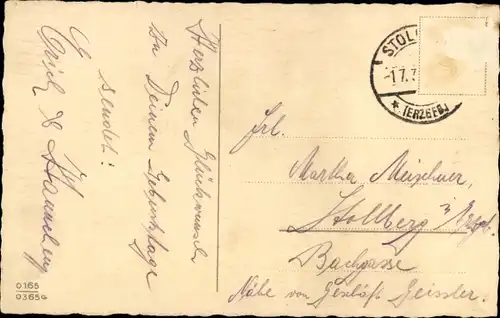 Herzlichen Glückwunsch
zu Deinem Geburtstage
sendet:
Erich & Hannchen
STOL
-1.7.3
★ (ERZGEB.)
Frl.
Martha Meischner,
Stollberg i. Erzgb.
Bachgasse
Nähe von Geschäft Geissler.
0165
0365G